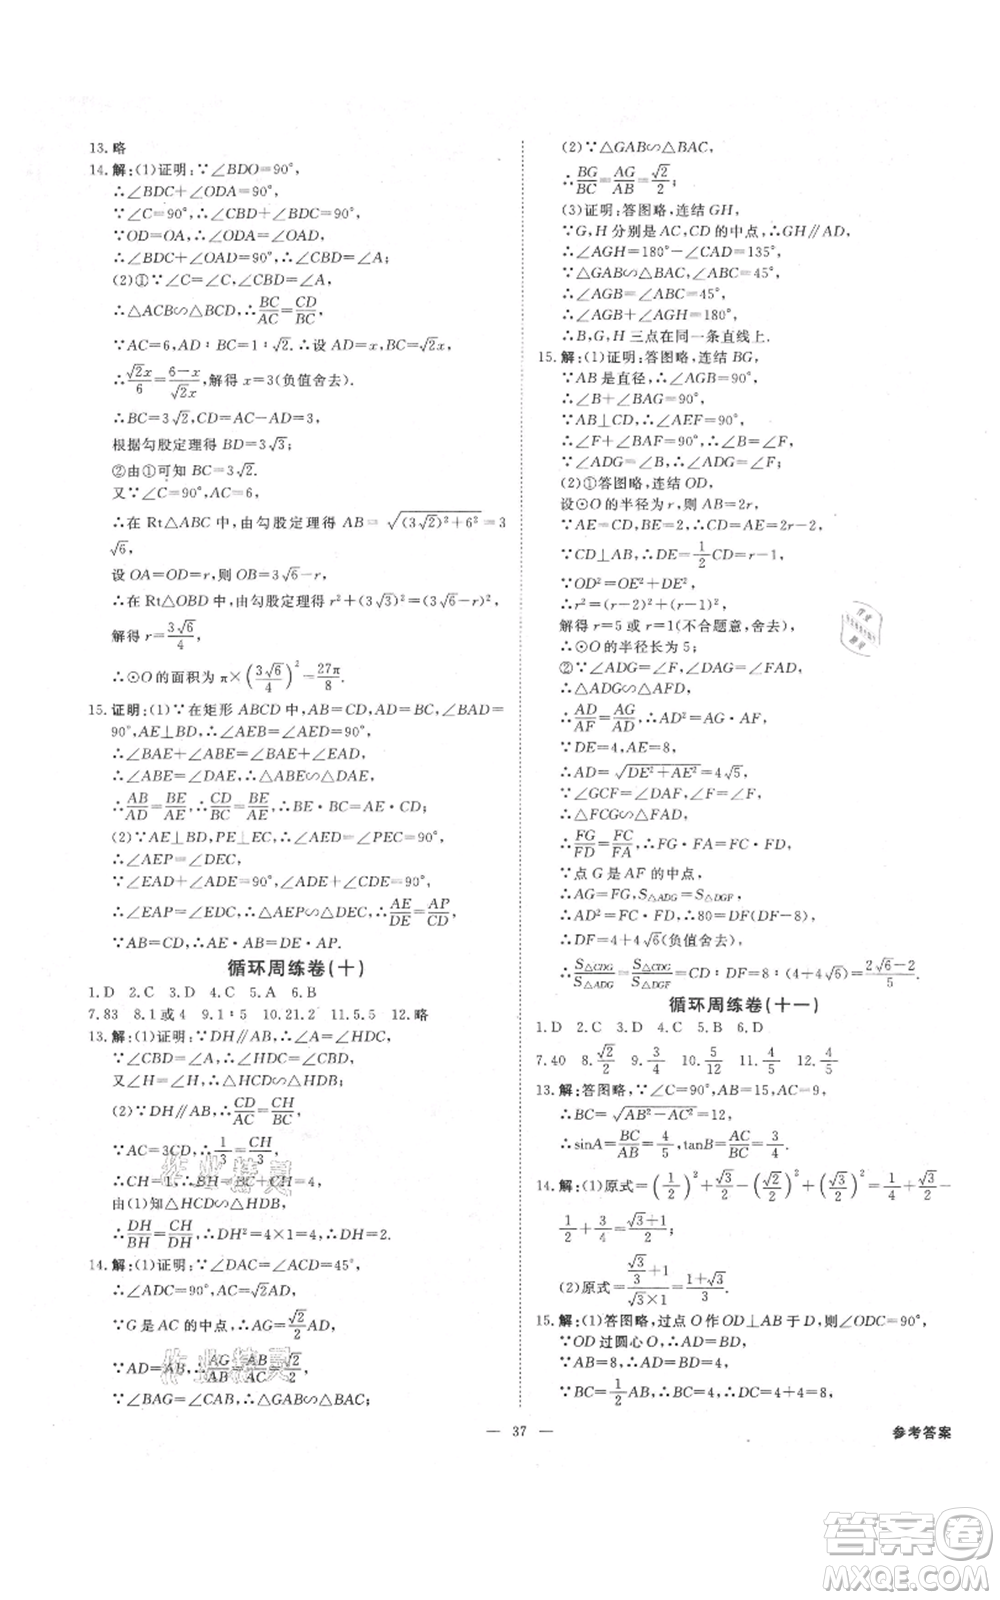 13.略
14.解:(1)证明:∵∠BDO=90°,
∴∠BDC+∠ODA=90°,
∵∠C=90°,∴∠CBD+∠BDC=90°,
∵OD=OA,∴∠ODA=∠OAD,
∴∠BDC+∠OAD=90°,∴∠CBD=∠A;
(2)①∵∠C=∠C,∠CBD=∠A,
∴△ACB∽△BCD,∴BC/AC=CD/BC,
∵AC=6,AD∶BC=1∶√2.∴设AD=x,BC=√2x,
∴√2x/6=(6-x)/(√2x),解得x=3(负值舍去).
∴BC=3√2,CD=AC-AD=3,
根据勾股定理得BD=3√3;
②由①可知BC=3√2,
又∵∠C=90°,AC=6,
∴在Rt△ABC中,由勾股定理得AB=√((3√2)²+6²)=3
√6,
设OA=OD=r,则OB=3√6-r,
∴在Rt△OBD中,由勾股定理得r²+(3√3)²=(3√6-r)²,
解得r=3√6/4,
∴⊙O的面积为π×(3√6/4)²=27π/8.
15.证明:(1)∵在矩形ABCD中,AB=CD,AD=BC,∠BAD=
90°,AE⊥BD,∴∠AEB=∠AED=90°,
∴∠BAE+∠ABE=∠BAE+∠EAD,
∴∠ABE=∠DAE,∴△ABE∽△DAE,
∴AB/AD=BE/AE,∴CD/BC=BE/AE,∴BE·BC=AE·CD;
(2)∵AE⊥BD,PE⊥EC,∴∠AED=∠PEC=90°,
∴∠AEP=∠DEC,
∵∠EAD+∠ADE=90°,∠ADE+∠CDE=90°,
∴∠EAP=∠EDC,∴△AEP∽△DEC,∴AE/DE=AP/CD,
∵AB=CD,∴AE·AB=DE·AP.
循环周练卷(十)
1.D 2.C 3.D 4.C 5.A 6.B
7.83 8.1或4 9.1∶5 10.21.2 11.5.5 12.略
13.解:(1)证明:∵DH∥AB,∴∠A=∠HDC,
∵∠CBD=∠A,∴∠HDC=∠CBD=∠A,
又∠H=∠H,∴△HDC∽△HBD;
(2)∵DH∥AB,∴CD/AC=CH/BC,
∵AC=3CD,∴1/3=CH/3,
∴CH=1,∴BH=BC+CH=4,
由(1)知△HCD∽△HDB,
∴DH/BH=CH/DH,∴DH²=4×1=4,∴DH=2.
14.解:(1)证明:∵∠DAC=∠ACD=45°,
∴∠ADC=90°,AC=√2AD,
∵G是AC的中点,∴AG=√2/2AD,
∵AD=AB,∴AG/AB=AB/AC=√2/2,
∵∠BAG=∠CAB,∴△GAB∽△BAC;
(2)∵△GAB∽△BAC,
∴BG/BC=AG/AB=√2/2;
(3)证明:答图略,连结GH,
∵G,H分别是AC,CD的中点,∴GH∥AD,
∴∠AGH=180°-∠CAD=135°,
∵△GAB∽△BAC,∠ABC=45°,
∴∠AGB=∠ABC=45°,
∴∠AGB+∠AGH=180°,
∴B,G,H三点在同一条直线上.
15.解:(1)证明:答图略,连结BG,
∵AB是直径,∴∠AGB=90°,
∴∠B+∠BAG=90°,
∵AB⊥CD,∴∠AEF=90°,
∴∠F+∠BAF=90°,∴∠B=∠F,
∵∠ADG=∠B,∴∠ADG=∠F;
(2)①答图略,连结OD,
设⊙O的半径为r,则AB=2r,
∵AE=CD,BE=2,∴CD=AE=2r-2,
∵CD⊥AB,∴DE=1/2CD=r-1,
∵OD²=OE²+DE²,
∴r²=(r-2)²+(r-1)²,
解得r=5或r=1(不合题意,舍去).
∴⊙O的半径长为5;
②∵∠ADG=∠F,∠DAG=∠FAD,
∴△ADG∽△AFD,
∴AD/AF=AG/AD,∴AD²=AG·AF,
∵DE=4,AE=8,
∴AD=√(DE²+AE²)=4√5,
∵∠GCF=∠DAF,∠F=∠F,
∴△FCG∽△FAD,
∴FG/FD=FC/FA,∴FG·FA=FC·FD,
∵点G是AF的中点,
∴AG=FG,S△ADG=S△DGF,
∴AD²=FC·FD,∴80=DF(DF-8),
∴DF=4+4√6(负值舍去),
∴S△CDG/S△ADG=S△CDG/S△DGF=CD∶DF=8∶(4+4√6)=(2√6-2)/5.
循环周练卷(十一)
1.D 2.C 3.D 4.C 5.B 6.D
7.40 8.√2/2 9.3/4 10.5/12 11.4/5 12.4/5
13.解:答图略,∵∠C=90°,AB=15,AC=9,
∴BC=√(AB²-AC²)=12,
∴sinA=BC/AB=4/5,tanB=AC/BC=3/4.
14.解:(1)原式=(1/2)²+√3/2-(√2/2)²+(√2/2)²=1/4+√3/2-
1/2+3/4=(√3+1)/2;
(2)原式=(√3/3+1)/(√3×1)=(1+√3)/3.
15.解:(1)答图略,过点O作OD⊥AB于D,则∠ODC=90°,
∵OD过圆心O,∴AD=BD,
∵AB=8,∴AD=BD=4,
∵BC=1/2AB=4,∴DC=4+4=8,
— 37 —
参考答案
作业精灵
作业精灵
答案圈
MXQE.COM